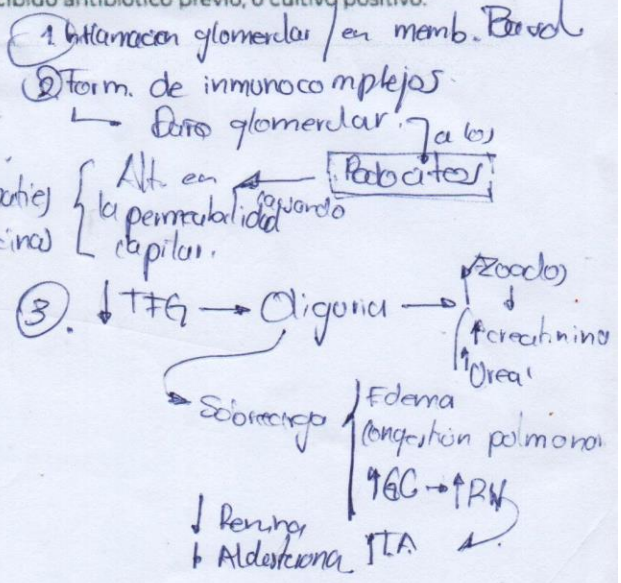 cibido antibiótico previo, o cultivo positivo.
1 Inflamacion glomerular / en memb. Basal
2 Form. de inmunocomplejos.
Daño glomerular. a los
Podocitos
Alt. en
la permeabilidad
capilar.
3. ↓ TFG → Oliguria → Azoados
↓
↑ creatinina
↑ Urea
Sobrecarga
Edema
Congestión pulmonar
↑GC → ↑RV
↓ Renina
↓ Aldosterona ↑TA